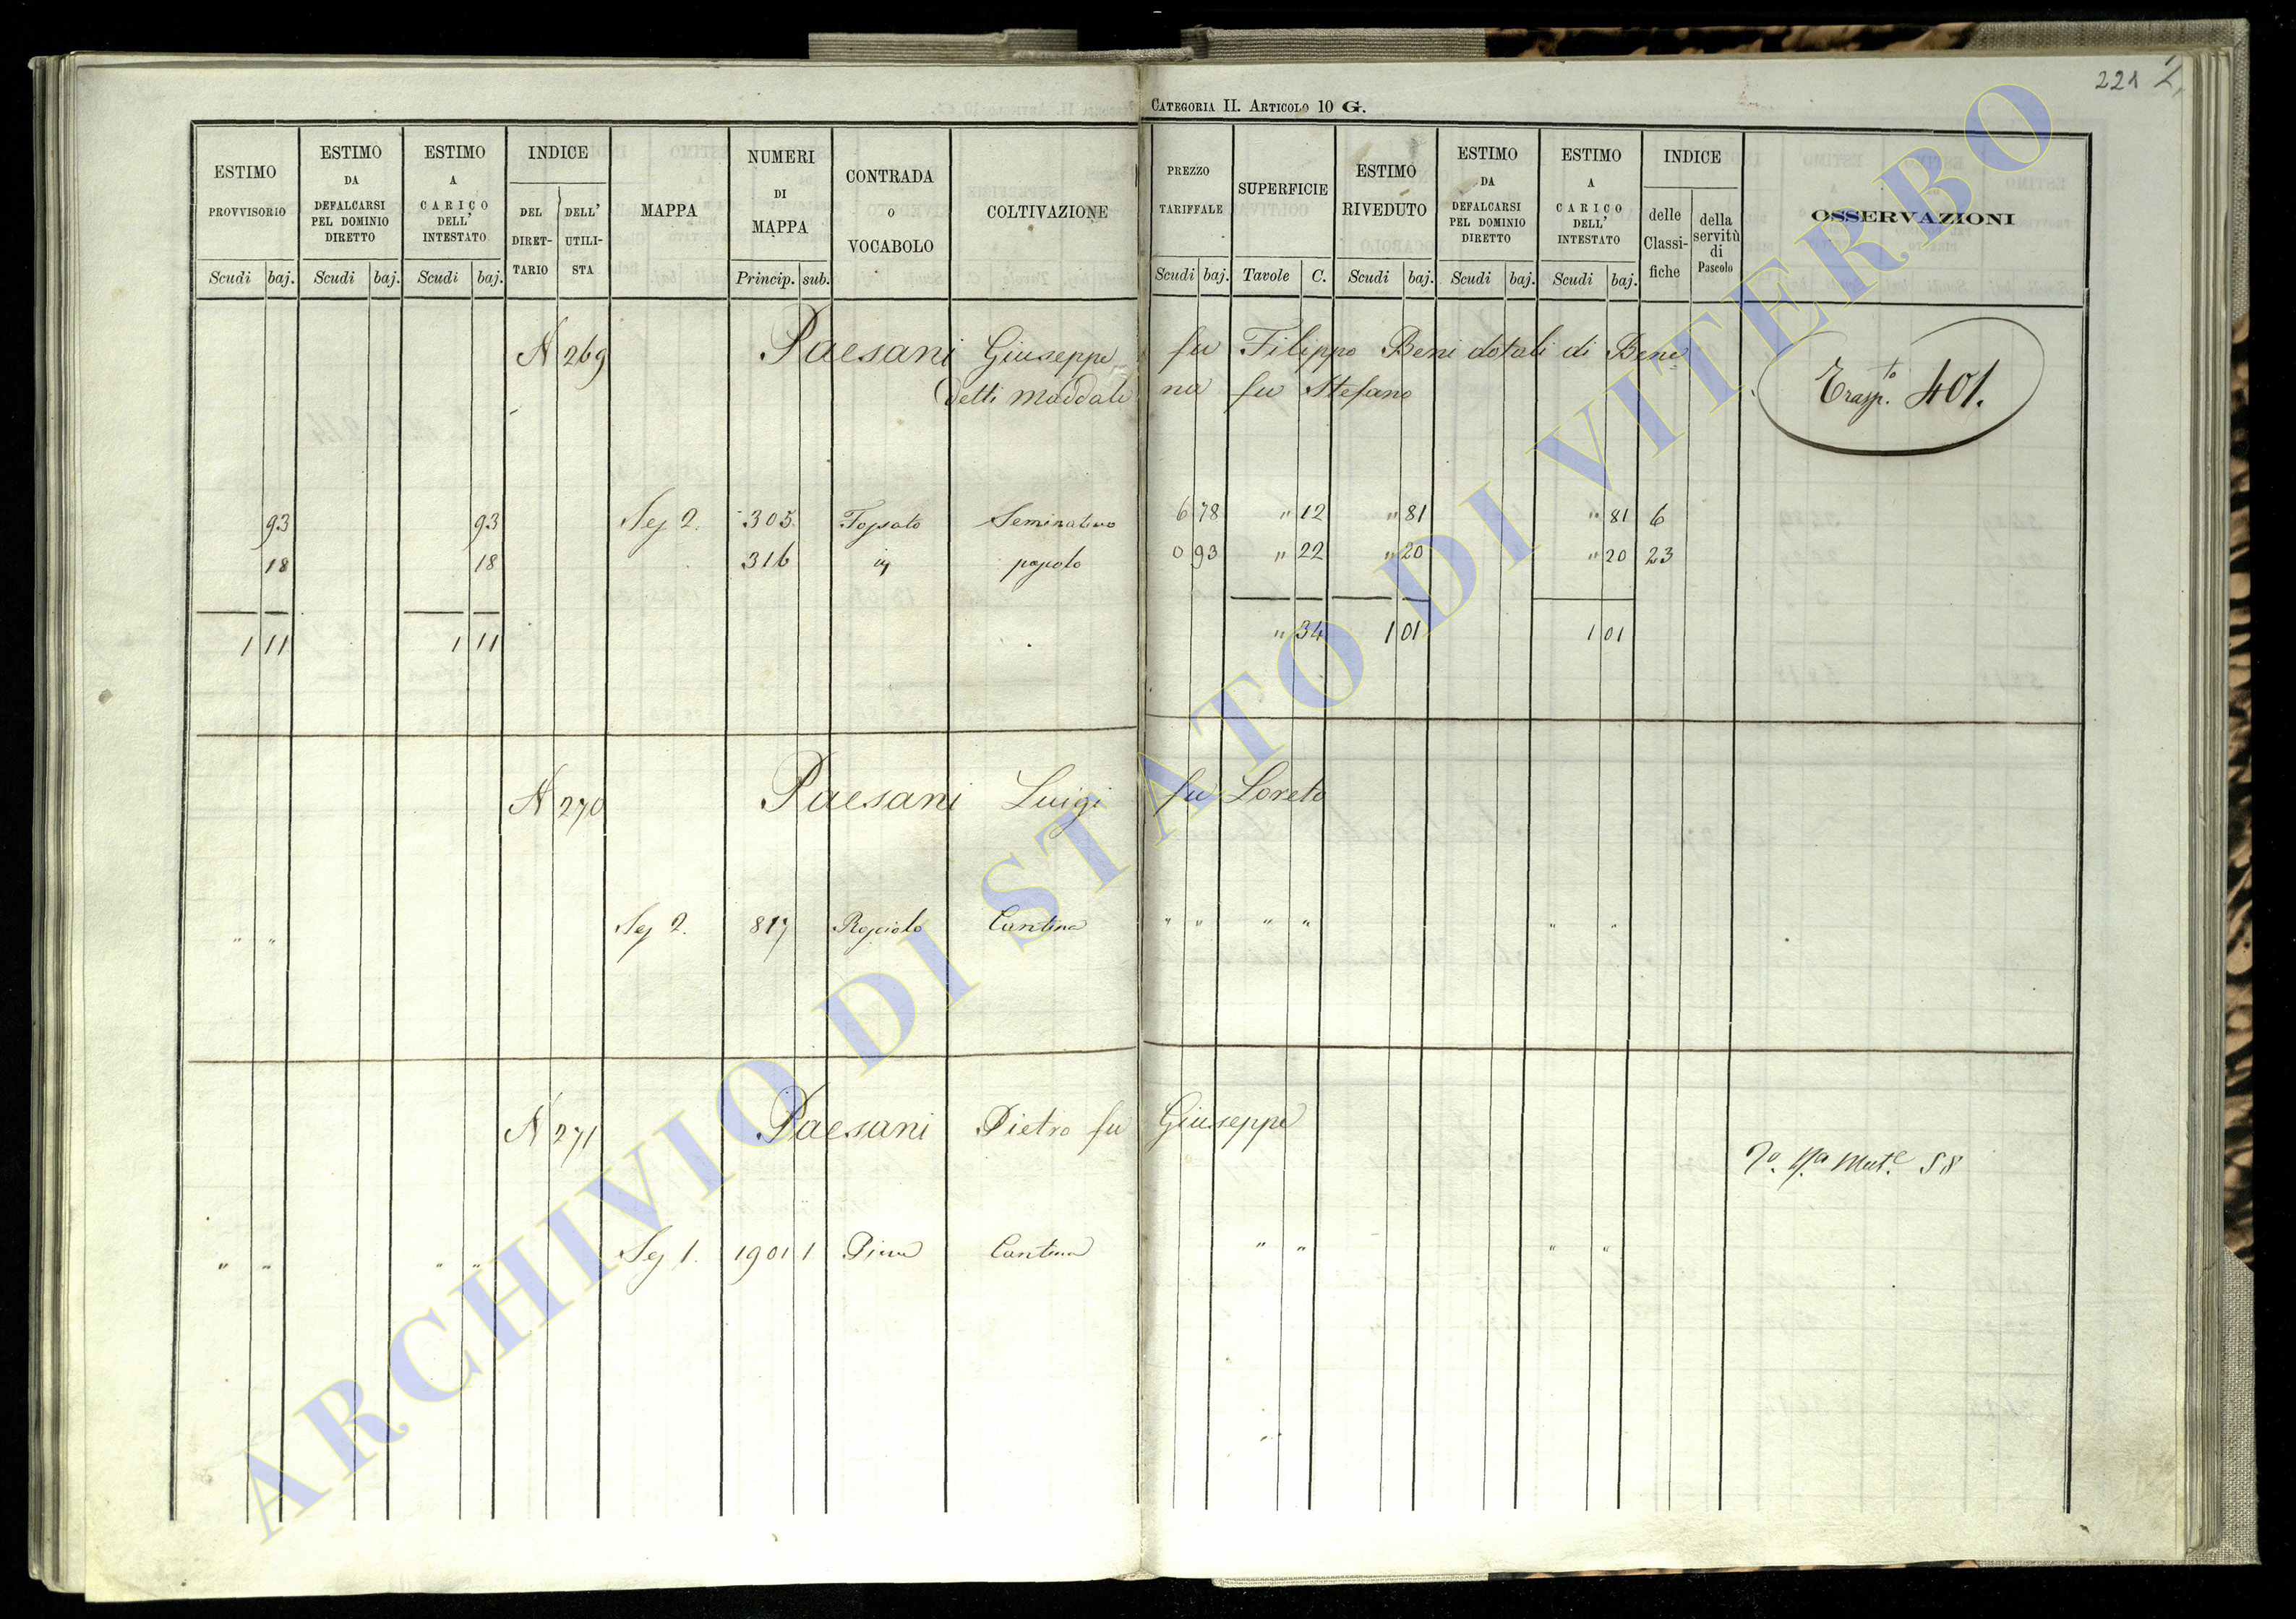 221
CATEGORIA II. ARTICOLO 10 G.
ESTIMO PROVVISORIO Scudi baj.
ESTIMO DA DEFALCARSI PEL DOMINIO DIRETTO Scudi baj.
ESTIMO A CARICO DELL' INTESTATO Scudi baj.
INDICE DEL DIRET-TARIO DELL' UTILI-STA
MAPPA
NUMERI DI MAPPA Princip. sub.
CONTRADA O VOCABOLO
COLTIVAZIONE
PREZZO TARIFFALE Scudi baj.
SUPERFICIE Tavole C.
ESTIMO RIVEDUTO Scudi baj.
ESTIMO DA DEFALCARSI PEL DOMINIO DIRETTO Scudi baj.
ESTIMO A CARICO DELL' INTESTATO Scudi baj.
INDICE delle Classi-fiche della servitù di Pascolo
OSSERVAZIONI
N 269 Paesani Giuseppe fu Filippo Beni dotali di Bene
detti Maddale na fu Stefano
Trasp.to 401.
93 93 Sez 2. 305 Seminativo 6 78 " 12 " 81 " 81 6
18 18 316 0 93 " 22 " 20 " 20 23
1 11 1 11 " 34 1 01 1 01
N 270 Paesani Luigi fu Loreto
" " Sez 2. 817 Cantina " " " " " "
N 271 Paesani Pietro fu Giuseppe
58
" " " " Sez 1. 1901 1 Cantina " " " "
ARCHIVIO DI STATO DI VITERBO